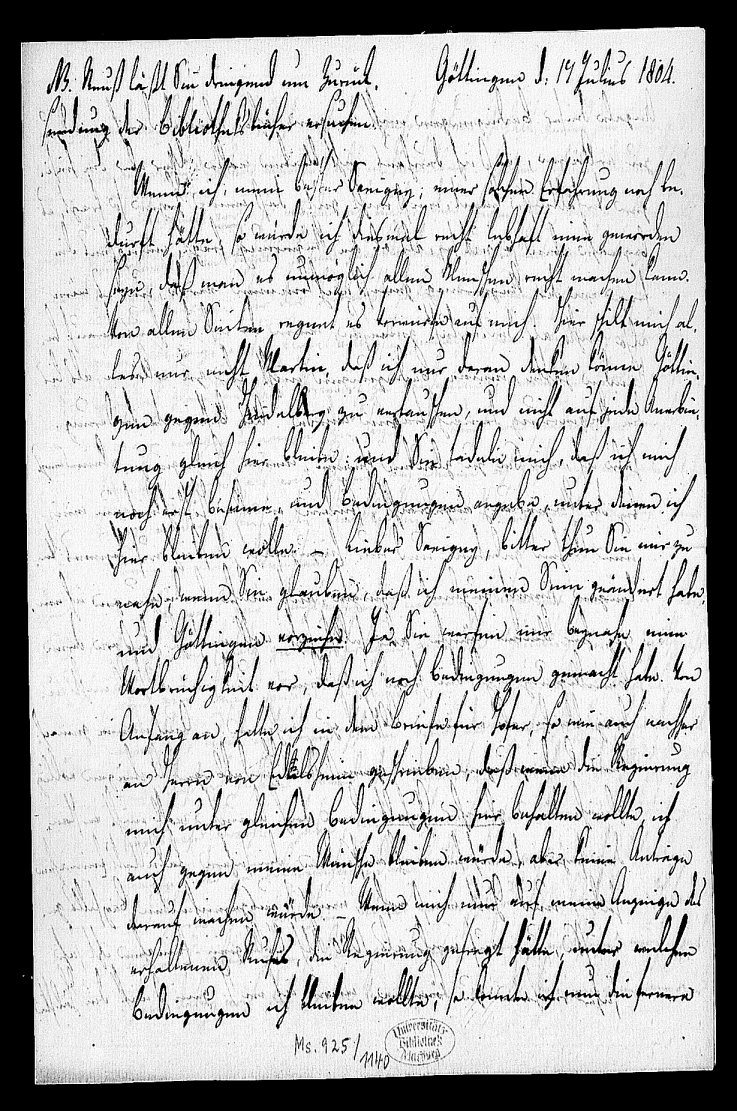 NB. Reuß läßt Sie dringend um Zurück- Göttingen d. 17 Julius 1804.
sendung der Bibliotheksbücher ersuchen.
Wenn ich, mein bester Savigny, einer solchen Erfahrung noch be-
durft hätte, so würde ich diesmal recht lebhaft inne geworden
seyn, daß man es unmöglich allen Menschen recht machen kann.
Von allen Seiten regnet es Vorwürfe auf mich. Hier schilt mich al-
les, nur nicht Martin, daß ich nur daran denken könne, Göttin-
gen gegen Heidelberg zu vertauschen, und nicht auf jede Anerbie-
tung gleich hier bleibe: und Sie tadeln mich, daß ich mich
noch erst besinne, und Bedingungen angebe, unter denen ich
hier bleiben wolle. – Lieber Savigny, bitter thun Sie mir zu
wehe, wenn Sie glauben, daß ich meinen Sinn geändert habe,
und Göttingen vorziehe. Ja, Sie werfen mir beynahe eine
Wortbrüchigkeit vor, daß ich noch Bedingungen gemacht habe. Von
Anfang an, hatte ich in dem Briefe für so wie auch nachher
an Herrn von Edelsheim geschrieben, daß wenn die Regierung
mich unter gleichen Bedingungen hier behalten wollte, ich
auch gegen meine Wünsche bleiben würde, aber keine Anträge
darauf machen würde. – Wenn mich nun auf meine Anzeige des
erhaltenen Rufes, die Regierung gefragt hätte, unter welchen
Bedingungen ich bleiben wollte, so konnte ich nun die fernere
Ms. 925/1140
Universitäts
Bibliothek
Marburg